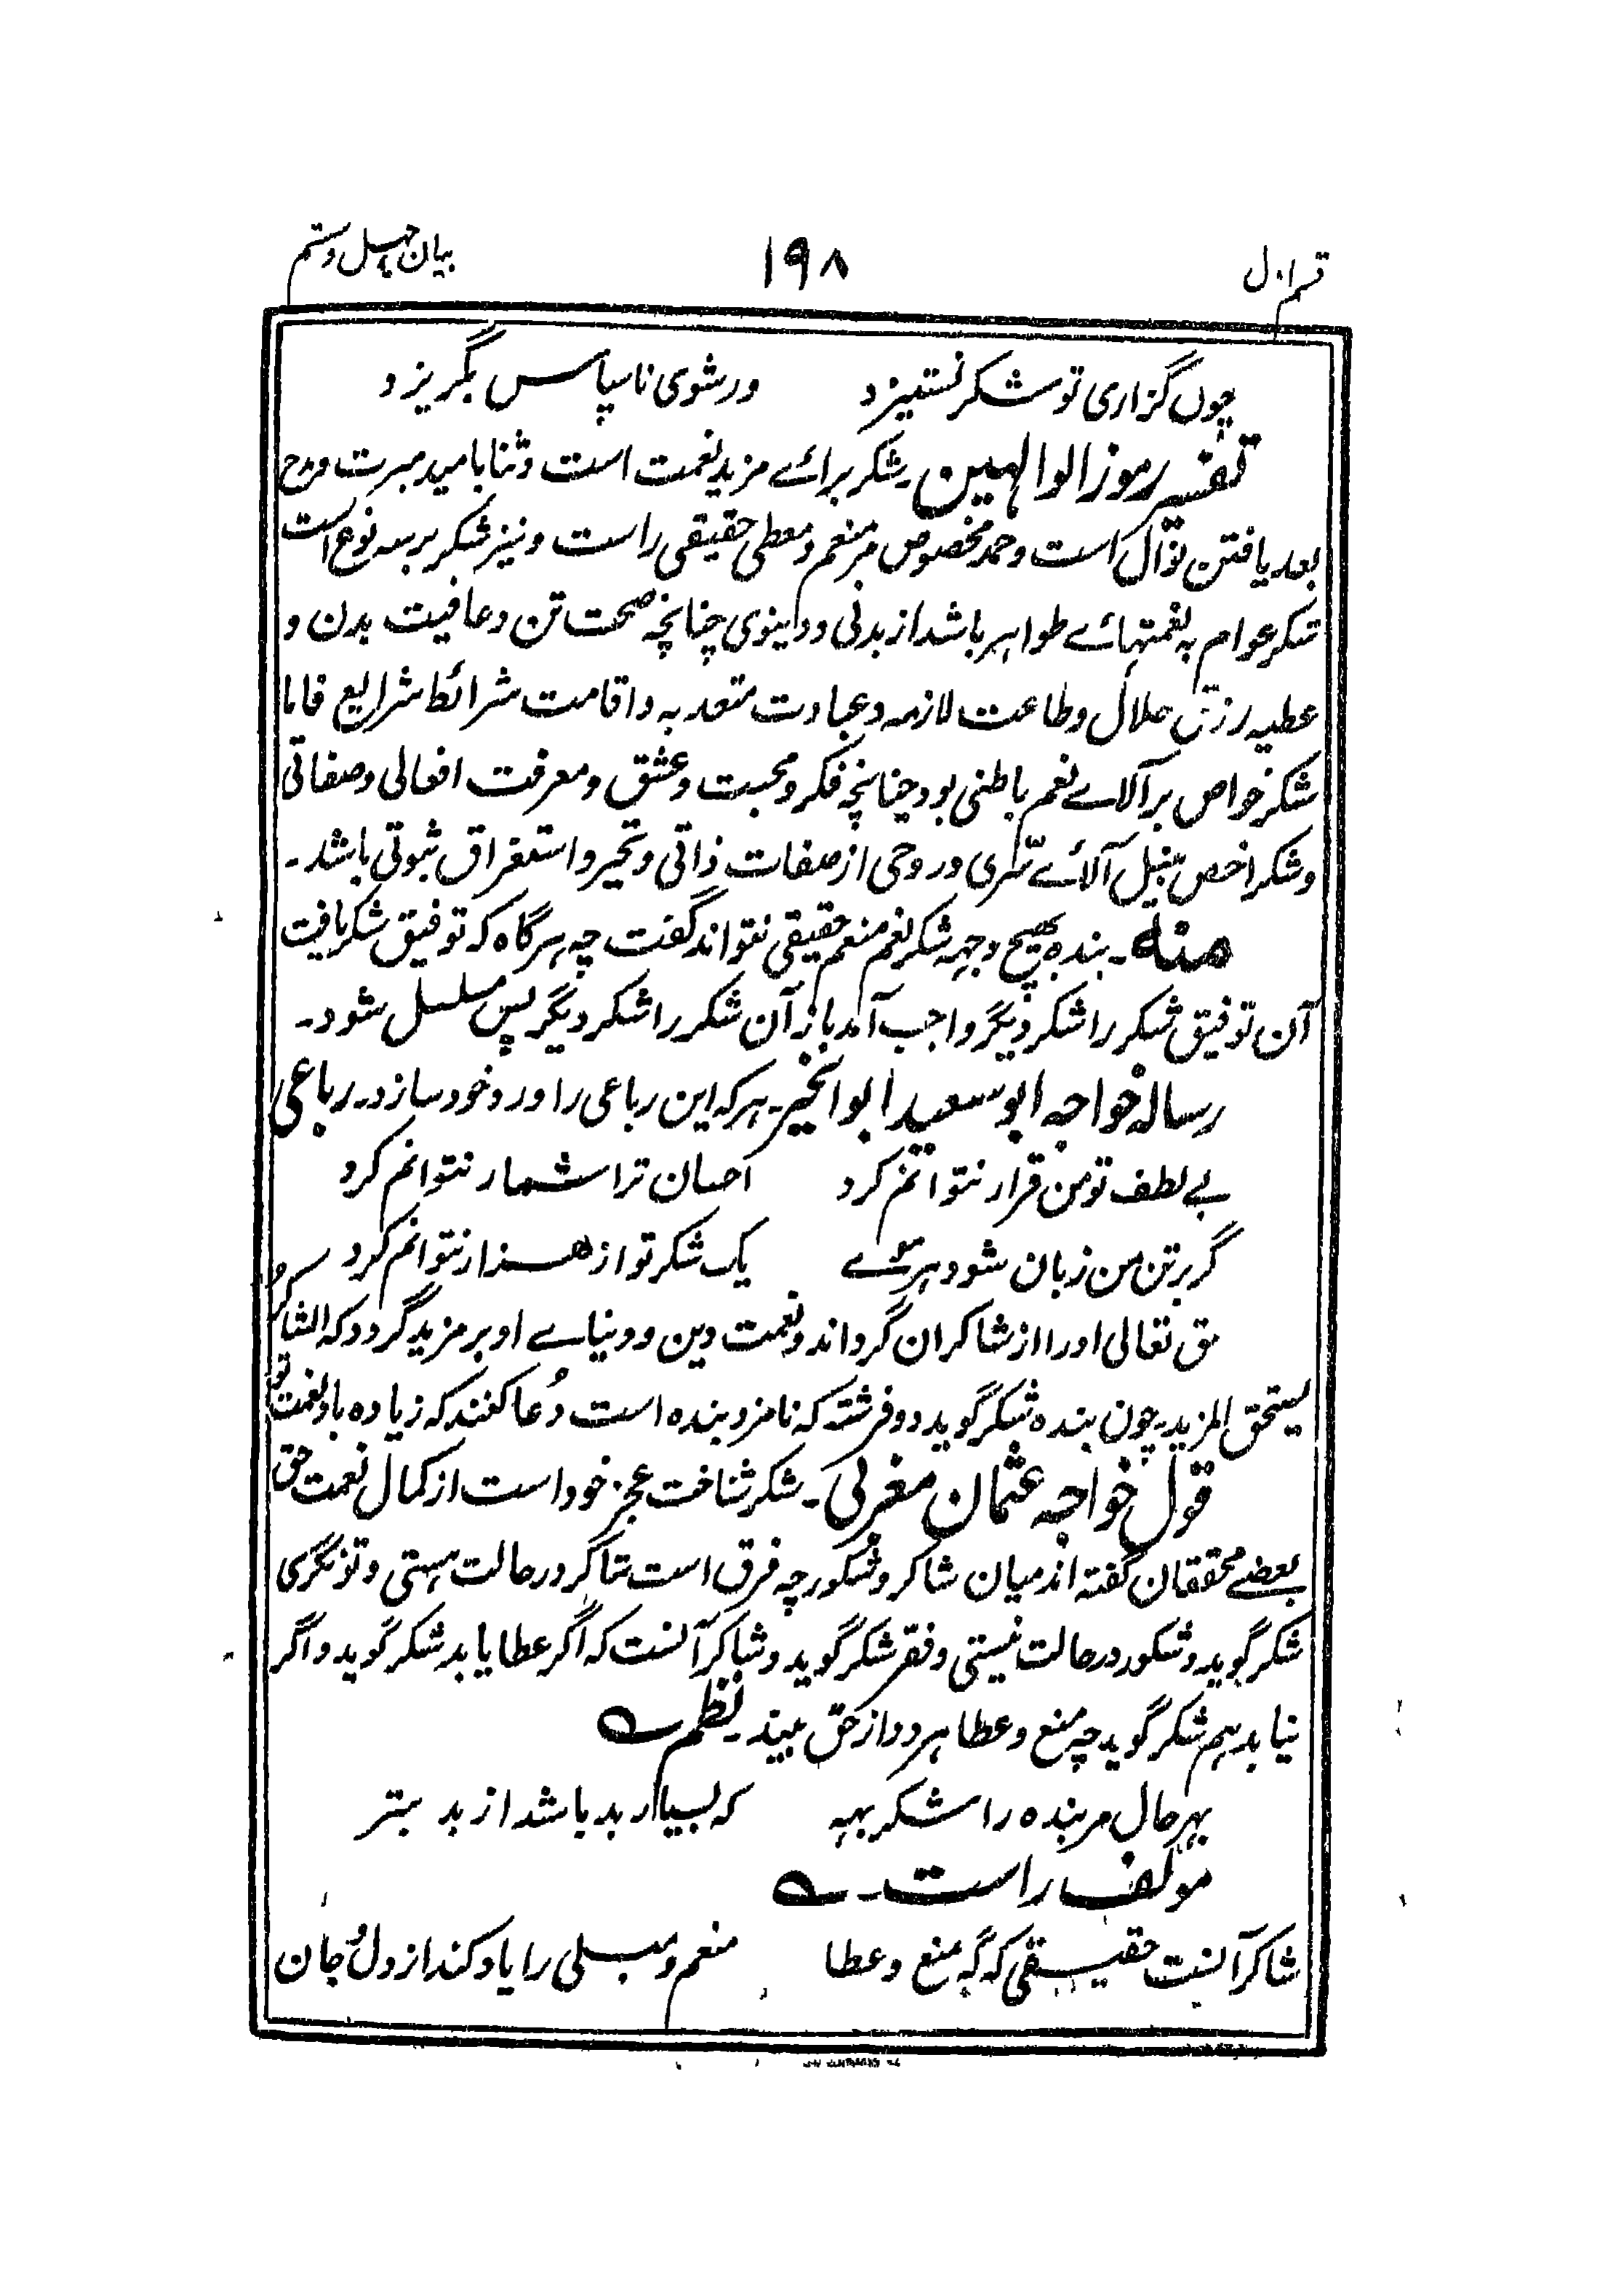 قسم اول ۱۹۸ بیان چهل و ششم
چوں گزاری تو شکر نستیزد ورشوی ناسپاس بگریزد
تفسیر رموز الوالهین۔ شکر برائے مزید نعمت است وثنا بامید مبرت ومدح
بعد یافتن نوال است وحمد مخصوص مر منعم ومعطی حقیقی راست ونیز شکر برسه نوع است
شکر عوام به نعمتهائے ظواهر باشد از بدنی ودنیوی چنانچه صحت تن وعافیت بدن و
عطیه رزق حلال وطاعت لازمه وعبادت متعدیه واقامت شرائط شرایع فاما
شکر خواص بر آلاے نعم باطنی بود چنانچه فکر ومحبت وعشق ومعرفت افعالی وصفاتی
وشکر اخص بنیل آلائے سّری وروحی از صفات ذاتی وتحیر واستغراق ثبوتی باشد۔
منه۔ بنده بهیچ وجهه شکر نعم منعم حقیقی نتواند گفت چه هرگاه که توفیق شکر یافت
آن توفیق شکر را شکر دیگر واجب آمد باز آن شکر را شکر دیگر پس مسلسل شود۔
رساله خواجه ابو سعید ابوالخیر۔ هرکه این رباعی را ورد خود سازد۔ رباعی
بے لطف تو من قرار نتوانم کرد احسان ترا شمار نتوانم کرد
گر بر تن من زبان شود هر موئے یک شکر تو از هزار نتوانم کرد
حق تعالی او را از شاکران گرداند ونعمت دین ودنیاے او بر مزید گردد که الشاکرُ
یستحق المزید۔ چون بنده شکر گوید دو فرشته که نامزد بنده است دُعا کنند که زیاده باد نعمت تو
قول خواجه عثمان مغربی۔ شکر شناخت عجز خود است از کمال نعمت حق
بعضے محققان گفته اند میان شاکر وشکور چه فرق است شاکر در حالت هستی وتونگری
شکر گوید وشکور در حالت نیستی وفقر شکر گوید وشاکر آنست که اگر عطا یابد شکر گوید واگر
نیابد هم شکر گوید چه منع وعطا هر دو از حق بیند۔ نظم ے
بهر حال مر بنده را شکر بهه که بسیار بد باشد از بد بتر
مولف راست۔ ے
شاکر آنست حقیقی که گه منع وعطا منعم ومبلی را یاد کند از دل وجان